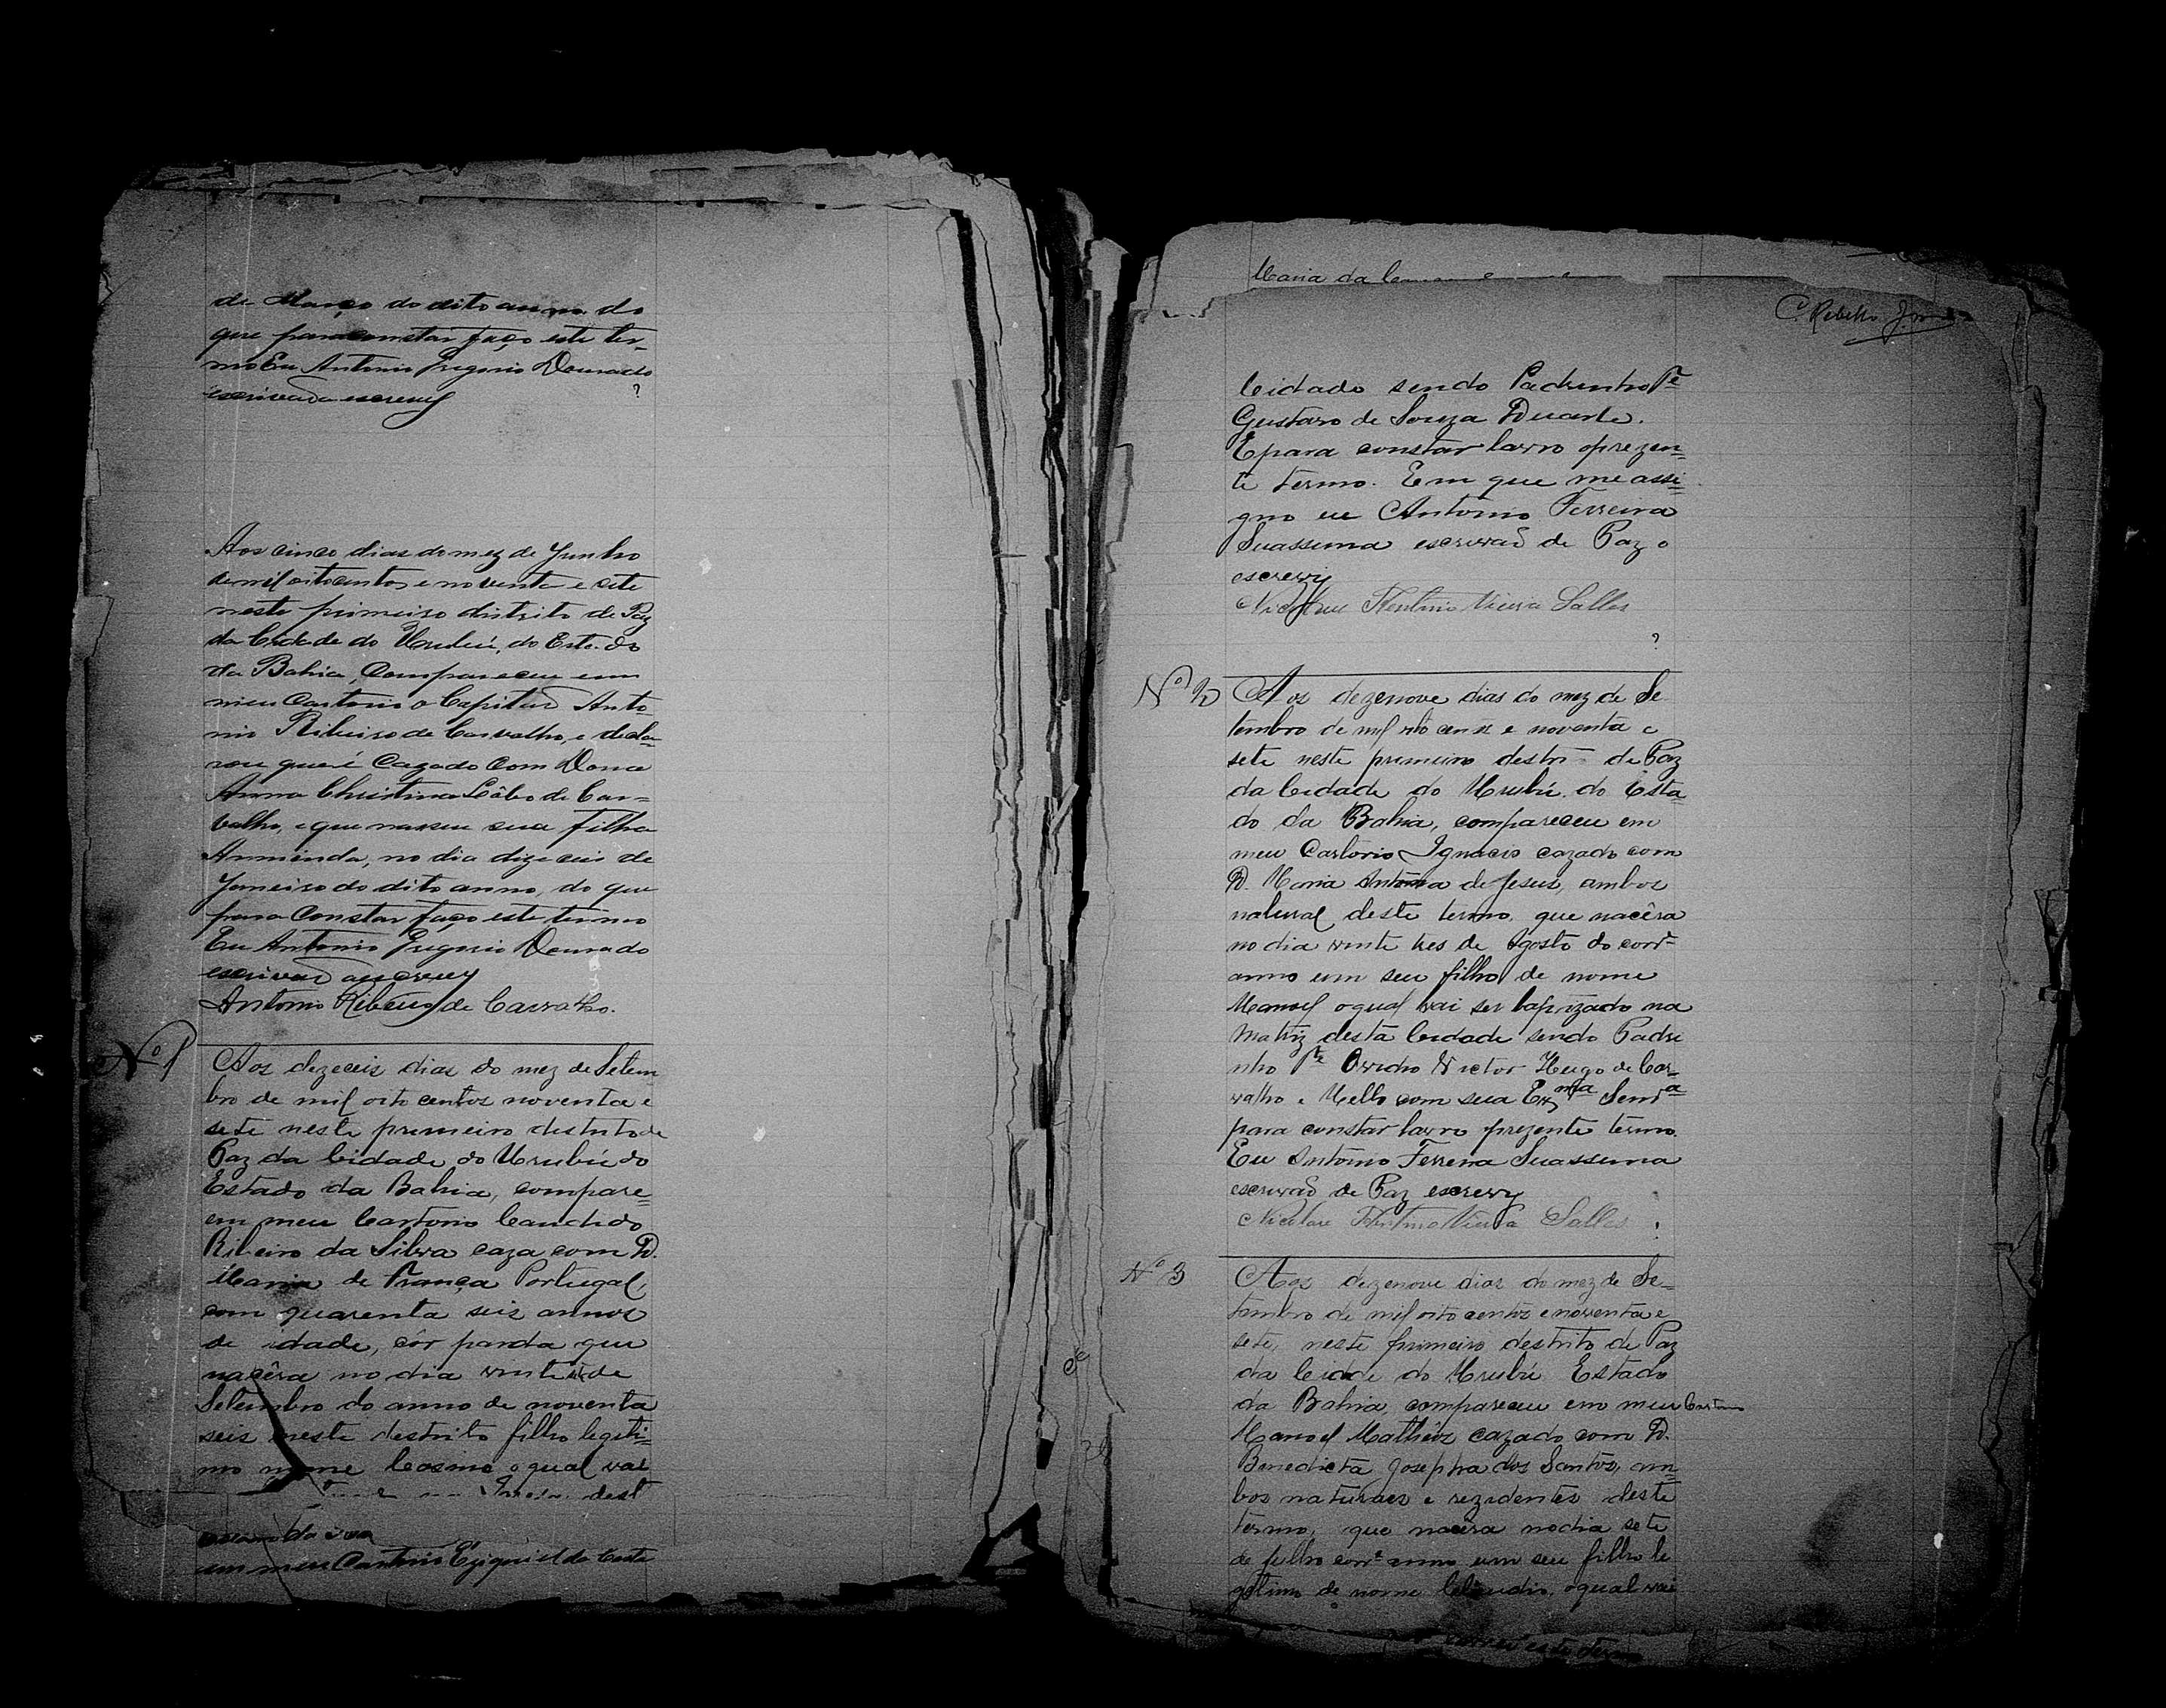 de Março do dito anno do
que para constar faço este ter-
mo Eu Antonio Gregorio Dourado
escrivão escrevy
?
Aos cinco dias do mez de Junho
de mil oitocentos e noventa e sete
neste primeiro distrito de Paz
da Cidade do Urubú, do Estado
da Bahia, Compareceu em
meu Cartorio o Capitão Anto-
nio Ribeiro de Carvalho, e decla-
rou que é Cazado Com Dona
Anna Christina Lôbo de Car=
valho, e que nasceu sua filha
Arminda, no dia dizeceis de
Janeiro do dito anno, do que
para Constar faço este termo
Eu Antonio Gregorio Dourado
escrivão escrevy
Antonio Ribeiro de Carvalho.
Nº 1
Aos dezeceis dias do mez de Setem
bro de mil oito centos noventa e
sete neste primeiro destrito de
Paz da Cidade do Urubú do
Estado da Bahia, compare=
em meu Cartorio Candido
Ribeiro da Silva caza com D.
Maria de França Portugal,
com quarenta seis annos
de idade, côr parda que
nacêra no dia vinte de
Setembro do anno de noventa
seis neste destrito filho legiti=
mo nome Cosme o qual vai
dest
em meu Cartorio Eziquiel da Costa
Maria da
C. Rebello Jor
Cidade sendo Padrinho Pe
Gustavo de Souza Duarte.
E para constar lavro o prezen=
te termo. Em que me assi=
gno eu Antonio Ferreira
Suassuna escrivão de Paz o
escrevy
Vieira Salles
?
Nº 2
Aos dezenove dias do mez de Se
tembro de mil oito centos e noventa e
sete neste primeiro destri de Paz
da Cidade do Urubú do Esta
do da Bahia, compareceu em
meu Cartorio Ignacio cazado com
D. Maria Antonia de Jesus, ambos
natural deste termo, que nacêra
no dia vinte tres de Agosto do corre
anno um seu filho de nome
Manoel o qual vai ser baptizado na
Matriz desta Cidade sendo Padri
nho Victor Hugo de Car=
valho e Mello com sua Exma Senra
para constar lavro prezente termo.
Eu Antonio Ferreira Suassuna
escrivão de Paz escrevy
Vieira Salles
Nº 3
Aos dezenove dias do mez de Se=
tembro de mil oito centos e noventa e
sete, neste primeiro destrito de Paz
da Cidade do Urubú Estado
da Bahia compareceu em meu Cartorio
Manoel Mathêos cazado com D.
Benedicta Josepha dos Santos, am=
bos naturaes e rezidentes deste
termo, que nacêra no dia sete
de Julho corre anno um seu filho le
gitimo de nome Claudio, o qual vai
este termo